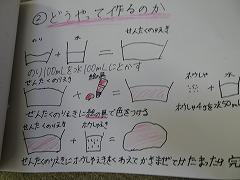 ② どうやって作るのか
のり 水 せんたくのりえき
のり100mLを水100mLにとかす
せんたくのりえき 絵の具 ホウしゃ 水
せんたくのりえきに絵の具で色をつける
ホウしゃ4gを水50m
せんたくのりえき ホウしゃえき
せんたくのりえきにホウしゃえきをくわえてかきまぜてかたまったら完